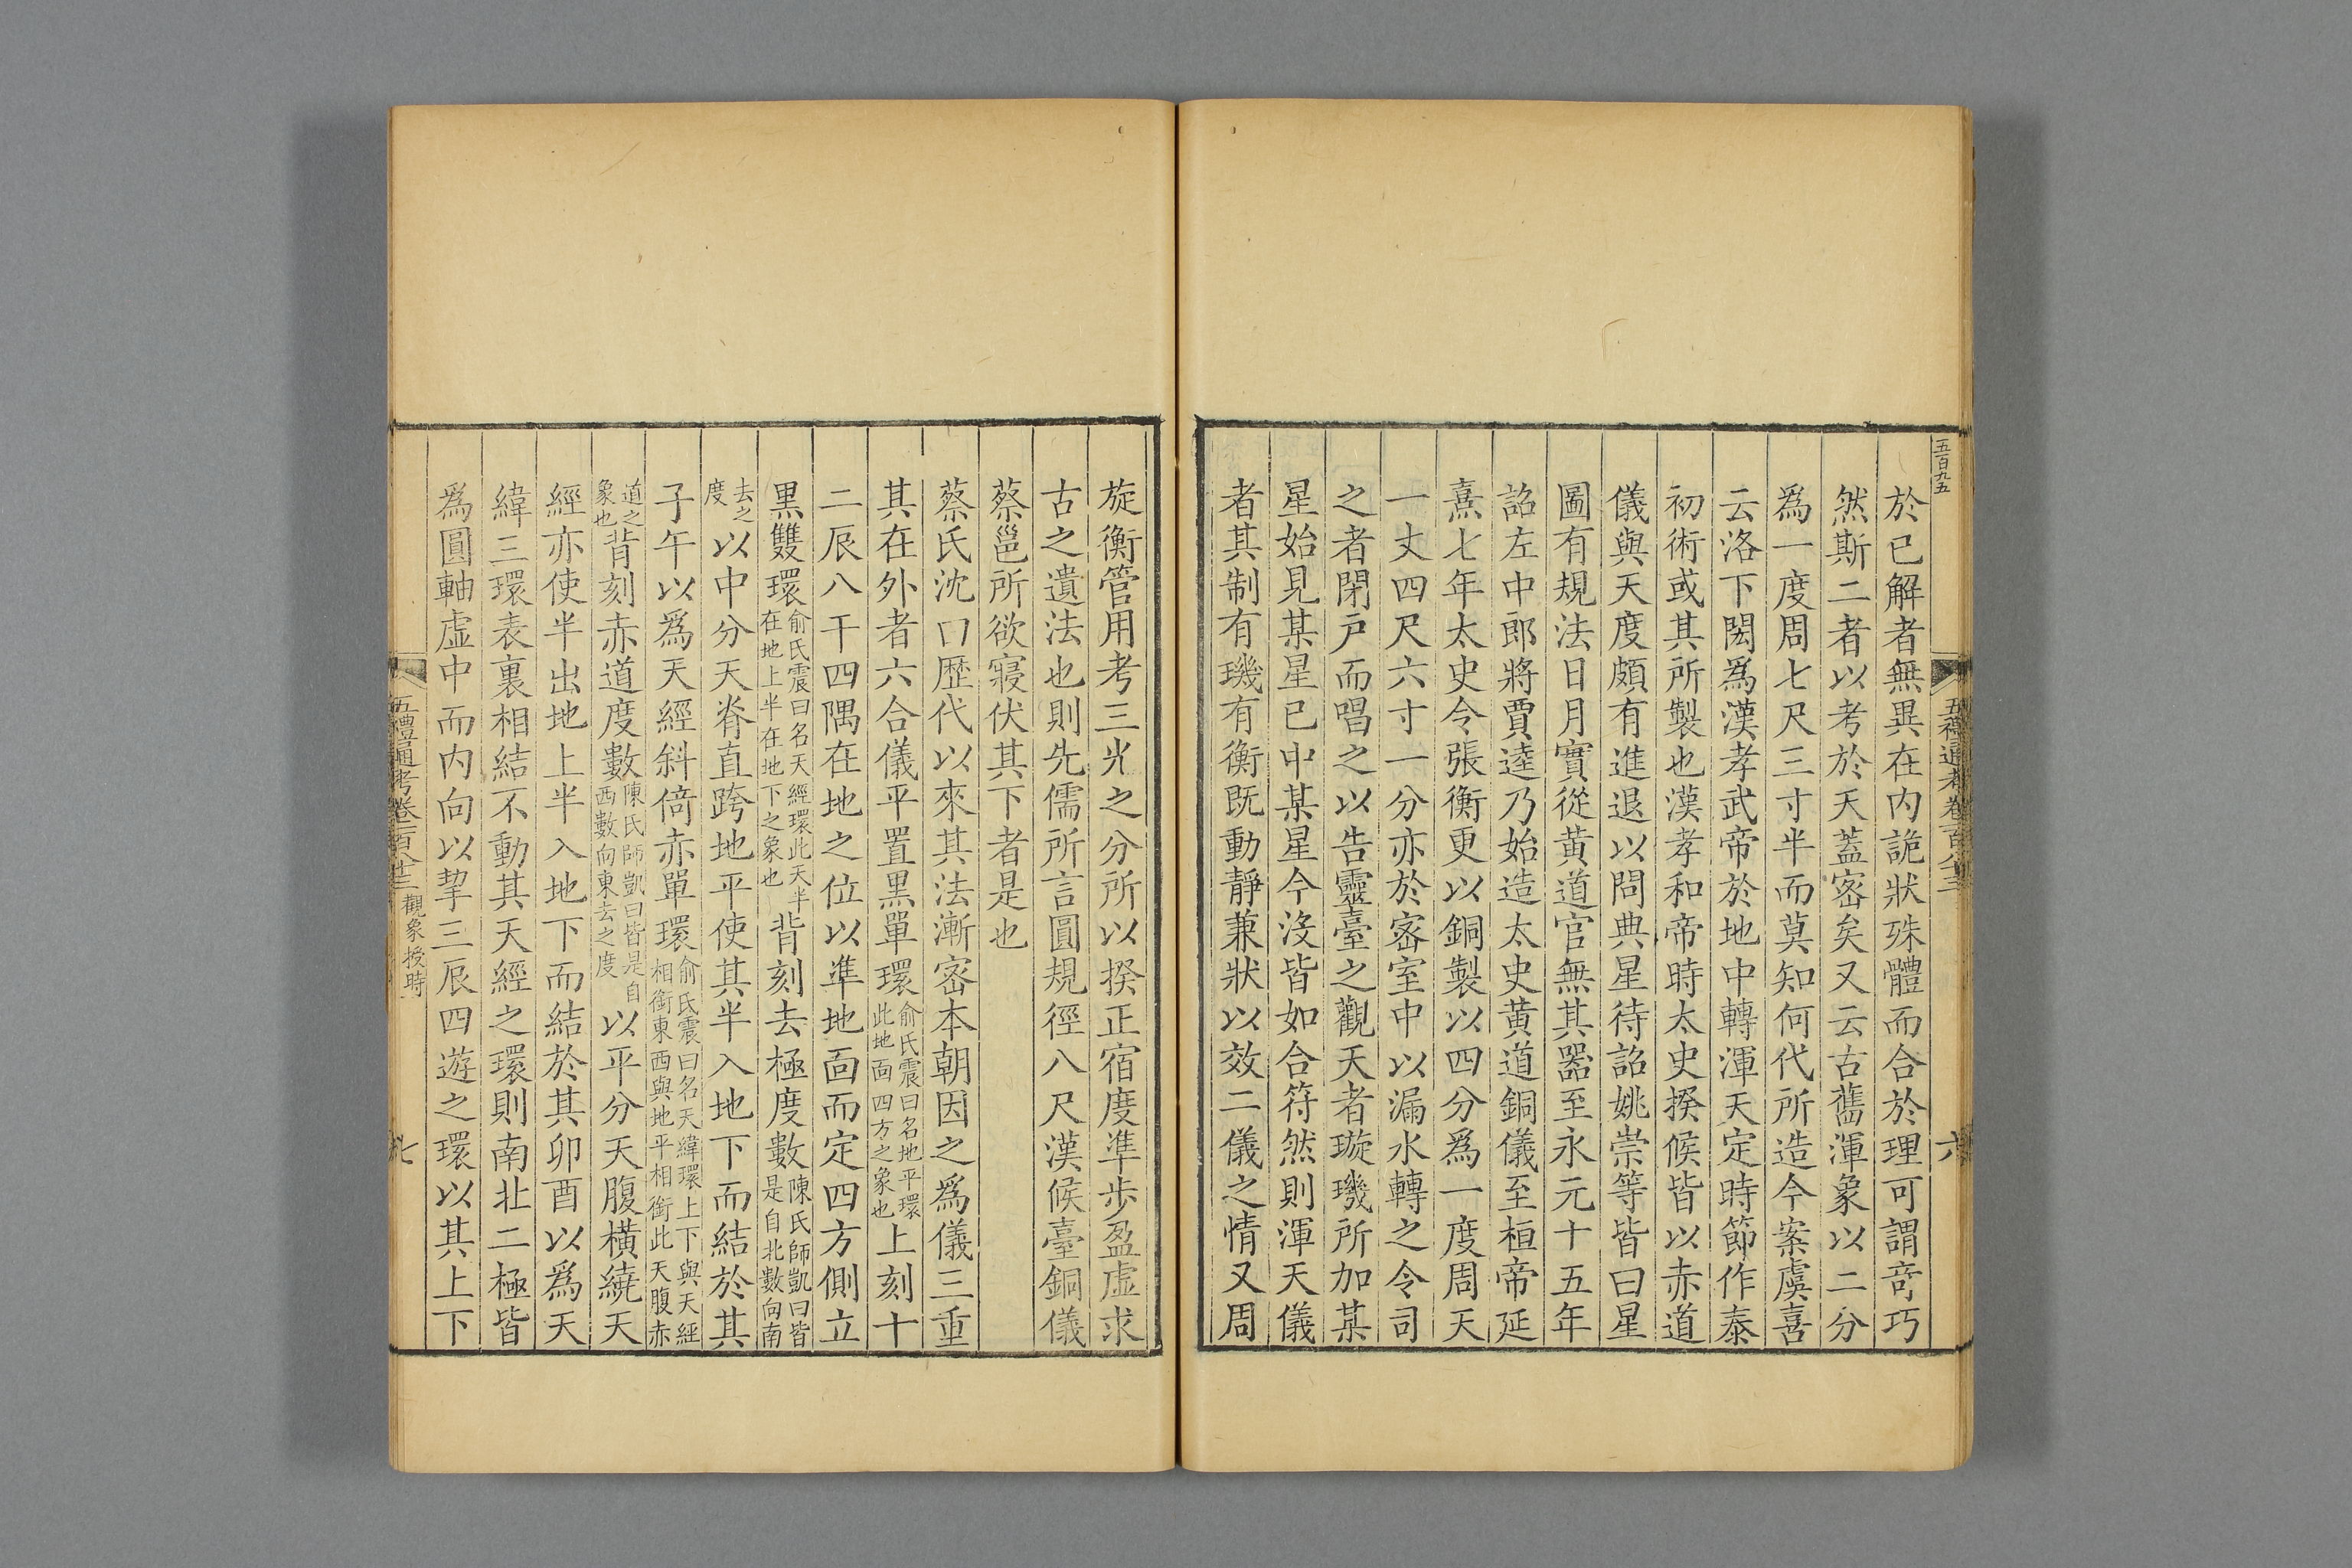 五百九五
五禮通考卷一百八十三
六
於已解者無異在內詭狀殊體而合於理可謂竒巧
然斯二者以考於天蓋宻矣又云古舊渾象以二分
爲一度周七尺三寸半而莫知何代所造今案虞喜
云洛下閎爲漢孝武帝於地中轉渾天定時節作泰
初術或其所製也漢孝和帝時太史揆候皆以赤道
儀與天度頗有進退以問典星待詔姚崇等皆曰星
圖有規法日月實從黃道官無其器至永元十五年
詔左中郎將賈逵乃始造太史黃道銅儀至桓帝延
熹七年太史令張衡更以銅製以四分爲一度周天
一丈四尺六寸一分亦於宻室中以漏水轉之令司
之者閉戸而唱之以告靈臺之觀天者璇璣所加某
星始見某星已中某星今沒皆如合符然則渾天儀
者其制有璣有衡既動靜兼狀以效二儀之情又周
旋衡管用考三光之分所以揆正宿度準步盈虛求
古之遺法也則先儒所言圓規徑八尺漢候臺銅儀
蔡邕所欲寢伏其下者是也
蔡氏沈曰歷代以來其法漸宻本朝因之爲儀三重
其在外者六合儀平置黑單環俞氏震曰名地平環此地面四方之象也上刻十
二辰八干四隅在地之位以準地面而定四方側立
黑雙環俞氏震曰名天經環此天半在地上半在地下之象也背刻去極度數陳氏師凱曰皆是自北數向南
去之度以中分天脊直跨地平使其半入地下而結於其
子午以爲天經斜倚赤單環俞氏震曰名天緯環上下與天經相銜東西與地平相銜此天腹赤
道之象也背刻赤道度數陳氏師凱曰皆是自西數向東去之度以平分天腹橫繞天
經亦使半出地上半入地下而結於其卯酉以爲天
緯三環表裏相結不動其天經之環則南北二極皆
爲圓軸虛中而內向以挈三辰四遊之環以其上下
五禮通考卷一百八十三 觀象授時
七